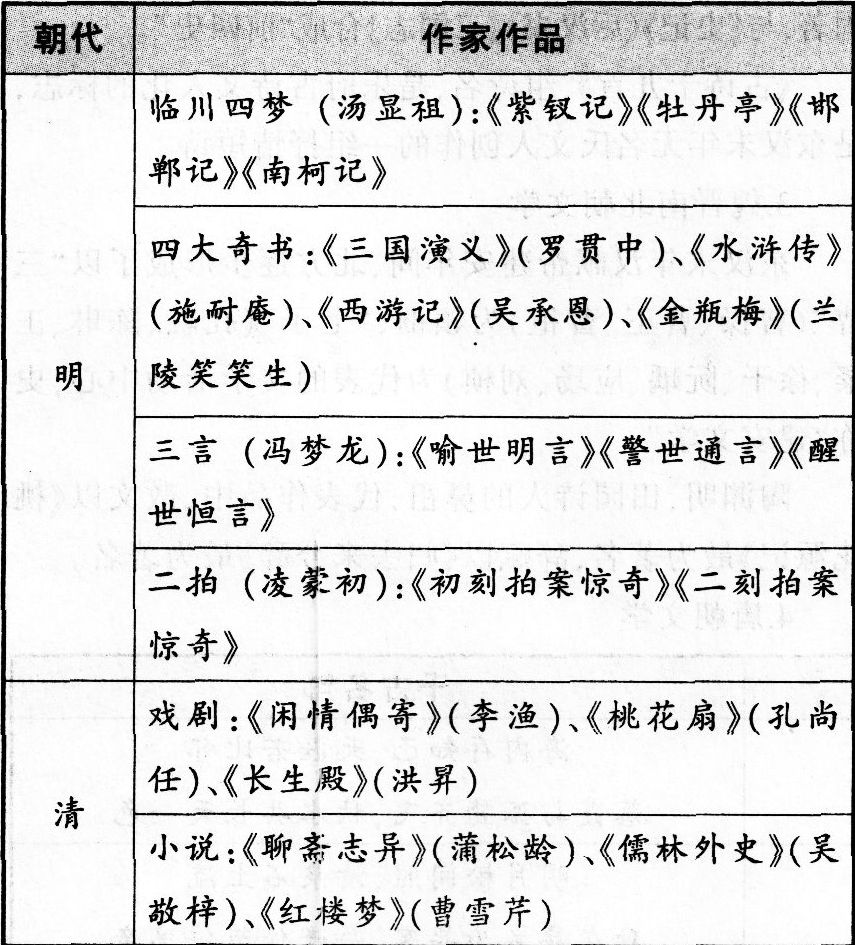 朝代 作家作品
临川四梦 (汤显祖):《紫钗记》《牡丹亭》《邯
郸记》《南柯记》
四大奇书:《三国演义》(罗贯中)、《水浒传》
(施耐庵)、《西游记》(吴承恩)、《金瓶梅》(兰
陵笑笑生)
明
三言 (冯梦龙):《喻世明言》《警世通言》《醒
世恒言》
二拍 (凌蒙初):《初刻拍案惊奇》《二刻拍案
惊奇》
戏剧:《闲情偶寄》(李渔)、《桃花扇》(孔尚
任)、《长生殿》(洪昇)
清
小说:《聊斋志异》(蒲松龄)、《儒林外史》(吴
敬梓)、《红楼梦》(曹雪芹)